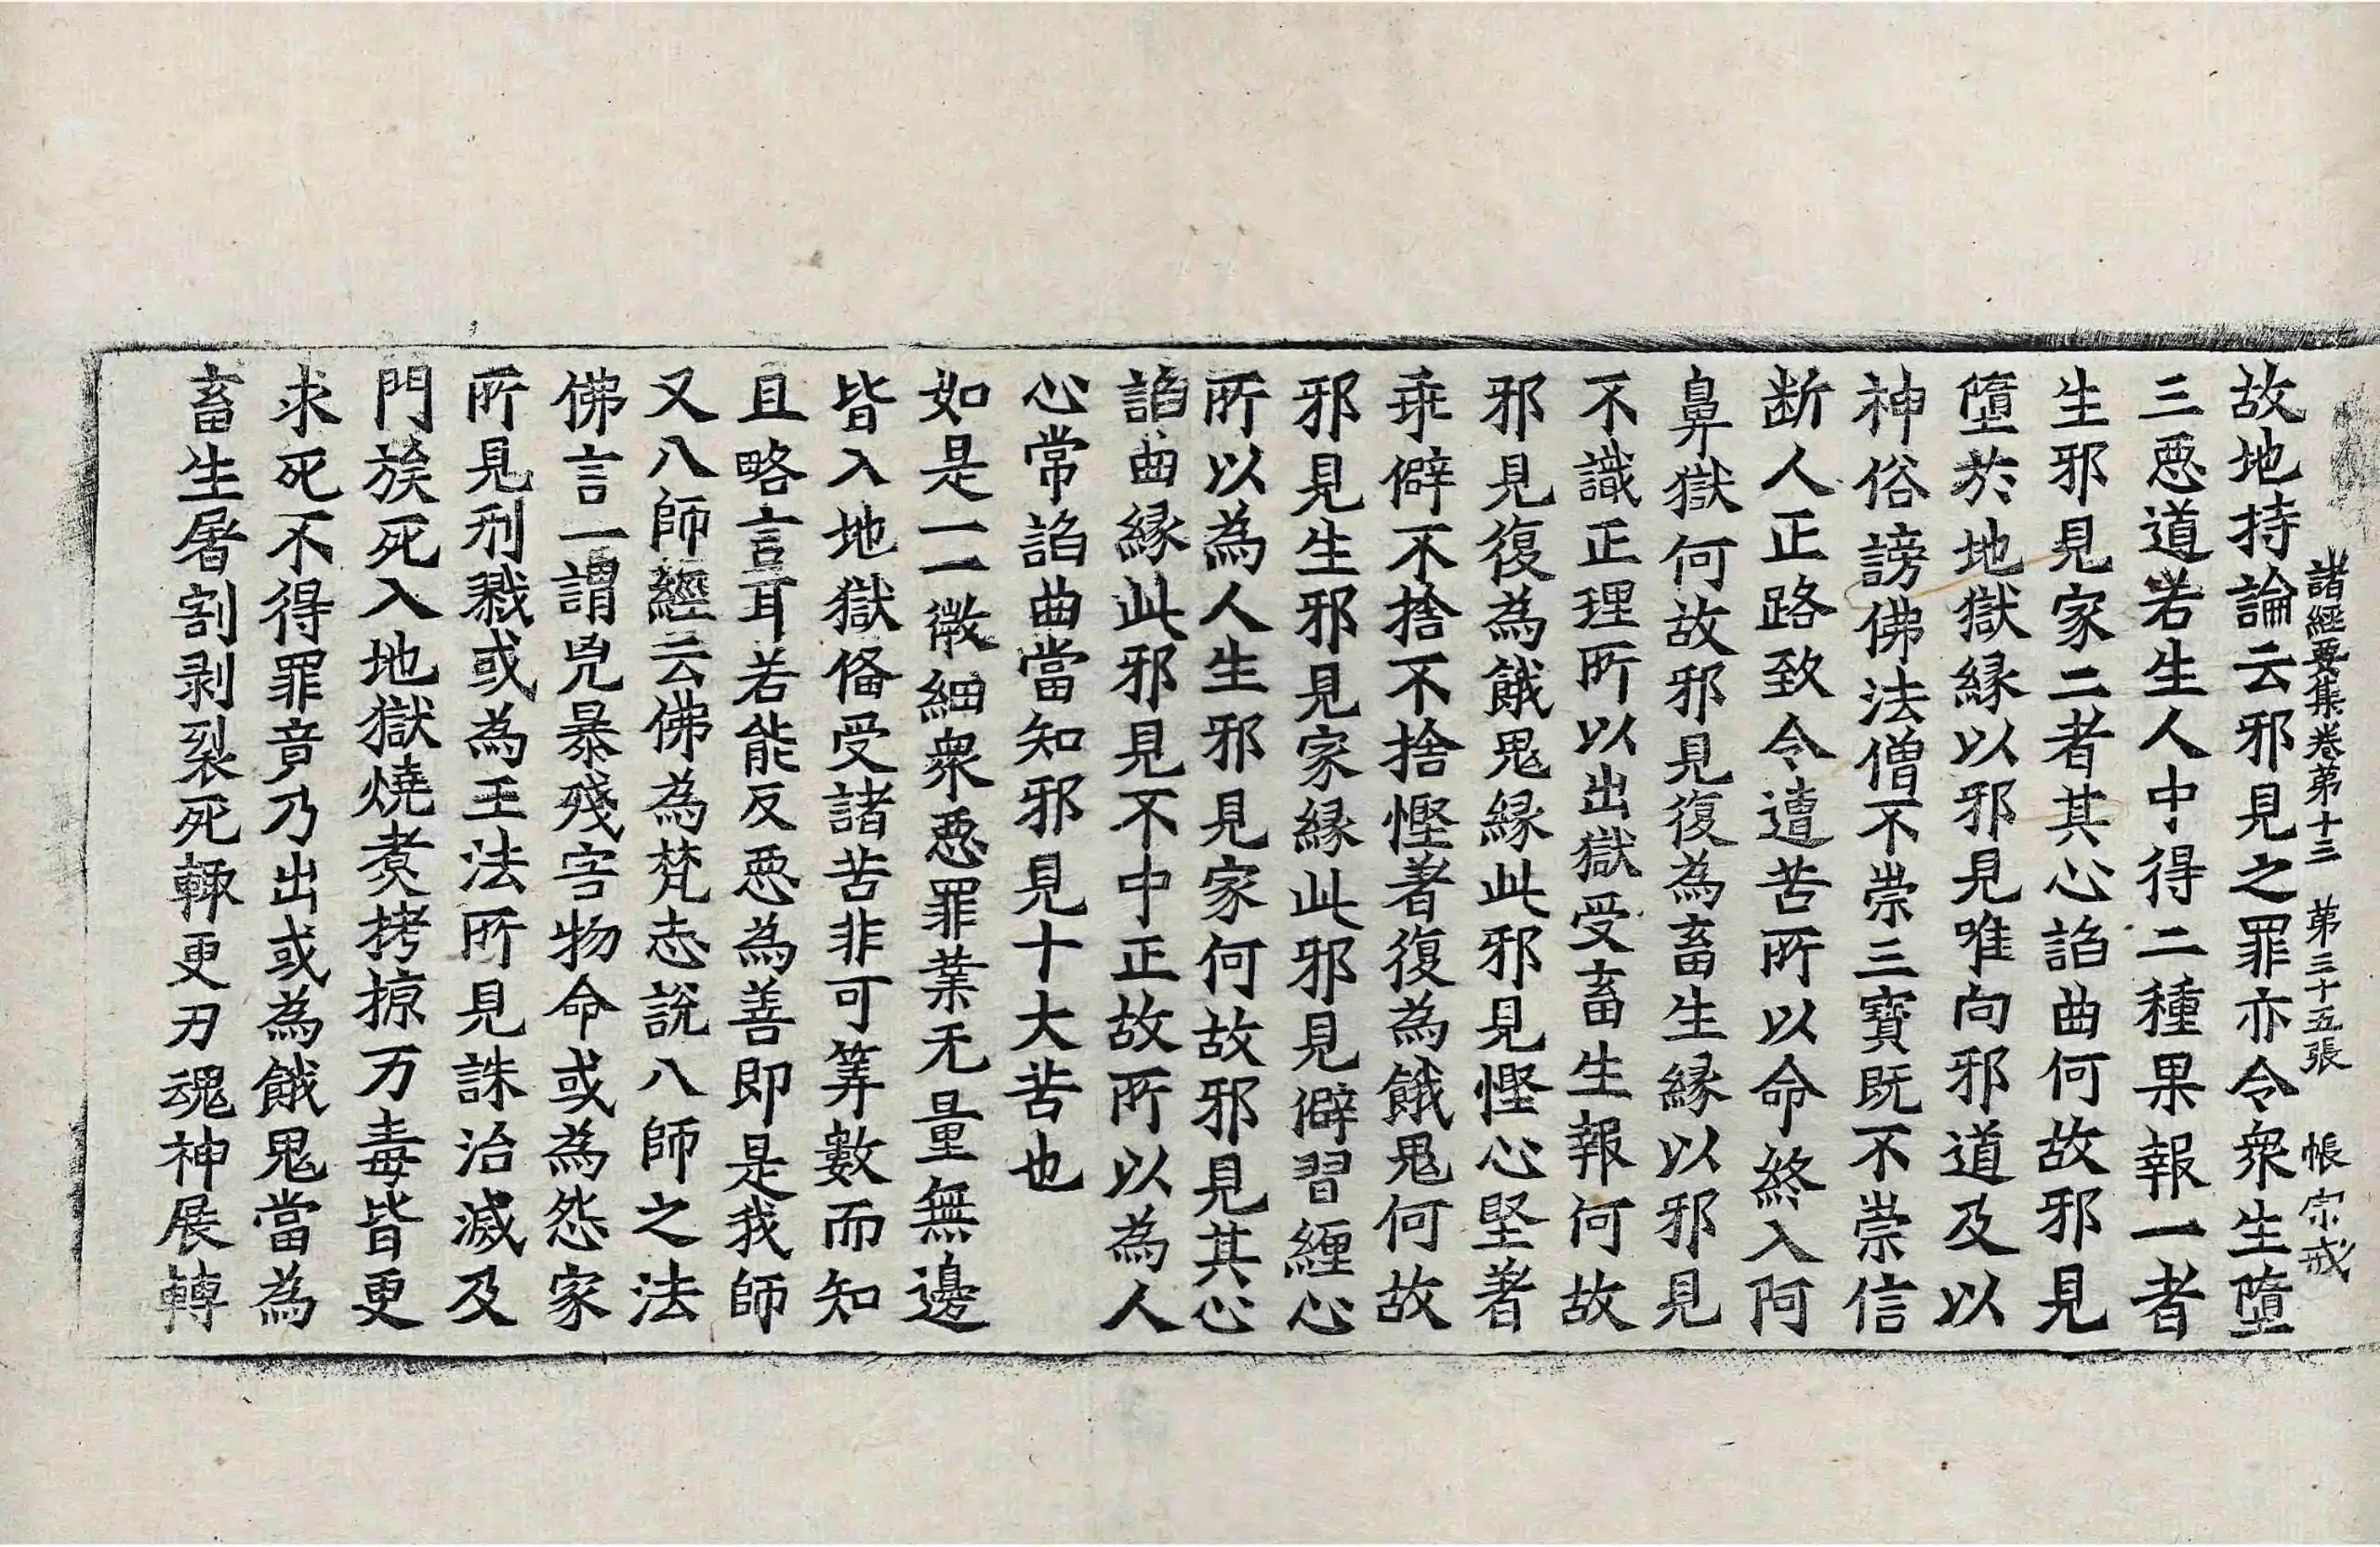 諸經要集卷第十三 第三十五張 帳 宗戒
故地持論云邪見之罪亦令衆生墮
三惡道若生人中得二種果報一者
生邪見家二者其心諂曲何故邪見
墮於地獄緣以邪見唯向邪道及以
神俗謗佛法僧不崇三寶既不崇信
断人正路致令遭苦所以命終入阿
鼻獄何故邪見復為畜生緣以邪見
不識正理所以出獄受畜生報何故
邪見復為餓鬼緣此邪見慳心堅著
乖僻不捨不捨慳著復為餓鬼何故
邪見生邪見家緣此邪見僻習纏心
所以為人生邪見家何故邪見其心
諂曲緣此邪見不中正故所以為人
心常諂曲當知邪見十大苦也
如是一一微細衆惡罪業无量無邊
皆入地獄俻受諸苦非可筭數而知
且略言耳若能反惡為善即是我師
又八師經云佛為梵志說八師之法
佛言一謂兇暴殘害物命或為怨家
所見刑戮或為王法所見誅治滅及
門族死入地獄燒煑拷掠万毒皆更
求死不得罪竟乃出或為餓鬼當為
畜生屠割剥裂死輙更刃魂神展轉